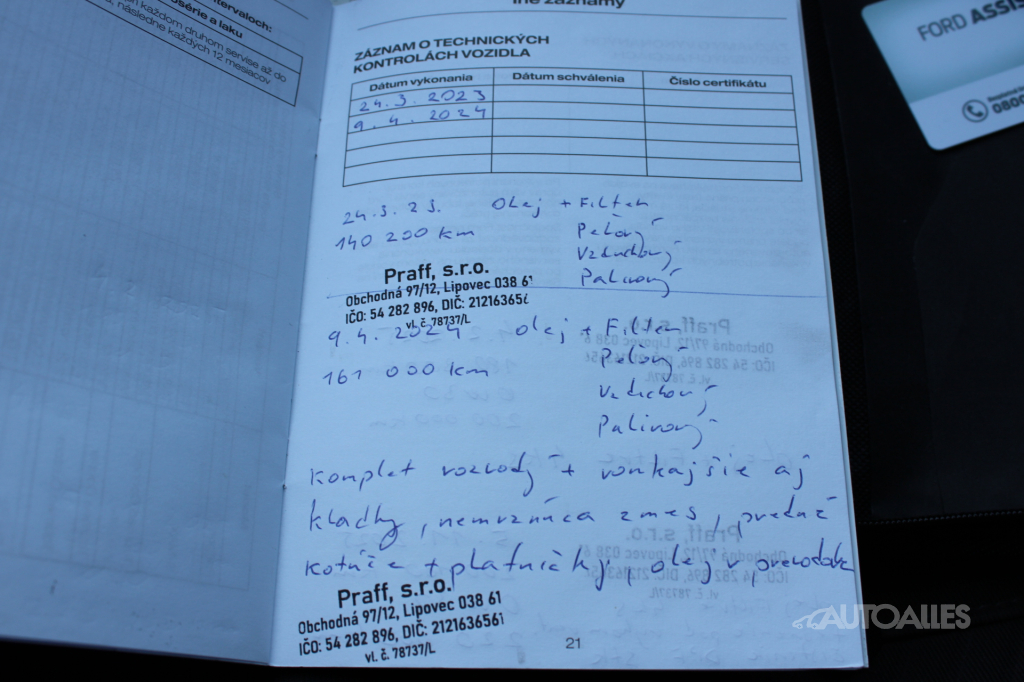 ntervaloch:
osérie a laku
i každom druhom servise až do
, následne každých 12 mesiacov
Iné záznamy
ZÁZNAM O TECHNICKÝCH
KONTROLÁCH VOZIDLA
Dátum vykonania Dátum schválenia Číslo certifikátu
24.3.2023
9.4.2024
24.3.23. Olej + Filter
140 200 km Peľový
Vzduchový
Palivový
Praff, s.r.o.
Obchodná 97/12, Lipovec 038 61
IČO: 54 282 896, DIČ: 212163656
vl. č. 78737/L
9.4.2024 Olej + Filter
161 000 km Peľový
Vzduchový
Palivový
Komplet rozvody + vonkajšie aj
kladky, nemrznúca zmes, predné
kotúče + platničky, olej v prevodovke
Praff, s.r.o.
Obchodná 97/12, Lipovec 038 61
IČO: 54 282 896, DIČ: 2121636561
vl. č. 78737/L
21
FORD ASSIS
0800
AUTOALLES